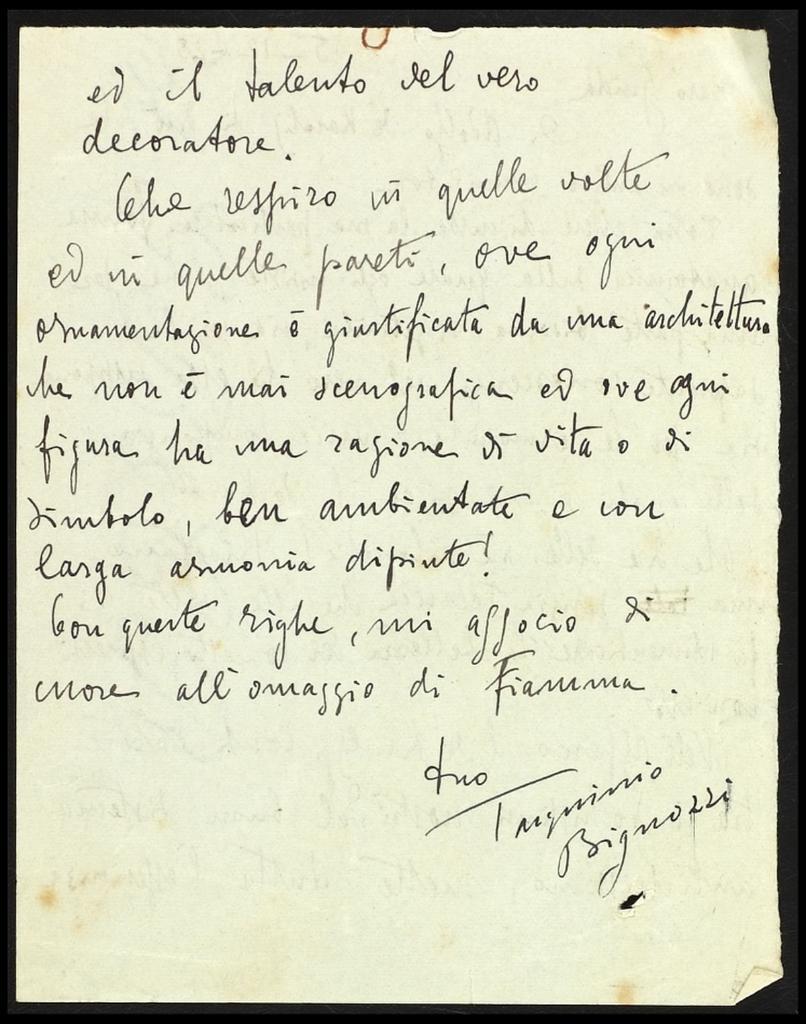 ed il talento del vero
decoratore.
Che respiro in quelle volte
ed in quelle pareti, ove ogni
ornamentazione è giustificata da una architettura
che non è mai scenografica ed ove ogni
figura ha una ragione di vita o di
simbolo, ben ambientate e con
larga armonia dipinte!
Con queste righe, mi associo di
cuore all'omaggio di Fiamma.
tuo
Bignozzi